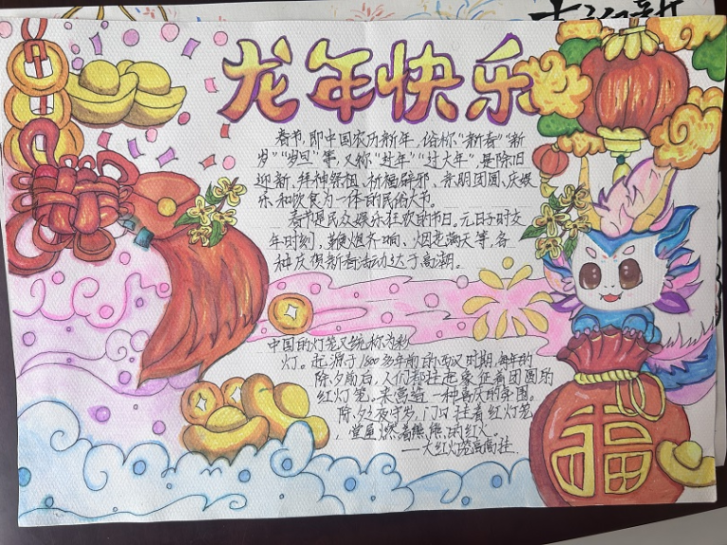 龙年快乐
春节,即中国农历新年,俗称"新春""新
岁""岁旦"等,又称"过年""过大年",是除旧
迎新、拜神祭祖、祈福辟邪、亲朋团圆、庆娱
乐和饮食为一体的民俗大节。
春节是民众娱乐狂欢的节日。元日子时交
年时刻,鞭炮齐响、烟花满天等,各
种庆贺新春活动达于高潮。
中国的灯笼又统称为彩
灯。起源于1800多年前的西汉时期,每年的
除夕前后,人们都挂起象征着团圆的
红灯笼,来营造一种喜庆的氛围。
除夕之夜守岁,门口挂着红灯笼
,堂里燃着熊熊的红火。
—大红灯笼高高挂
福